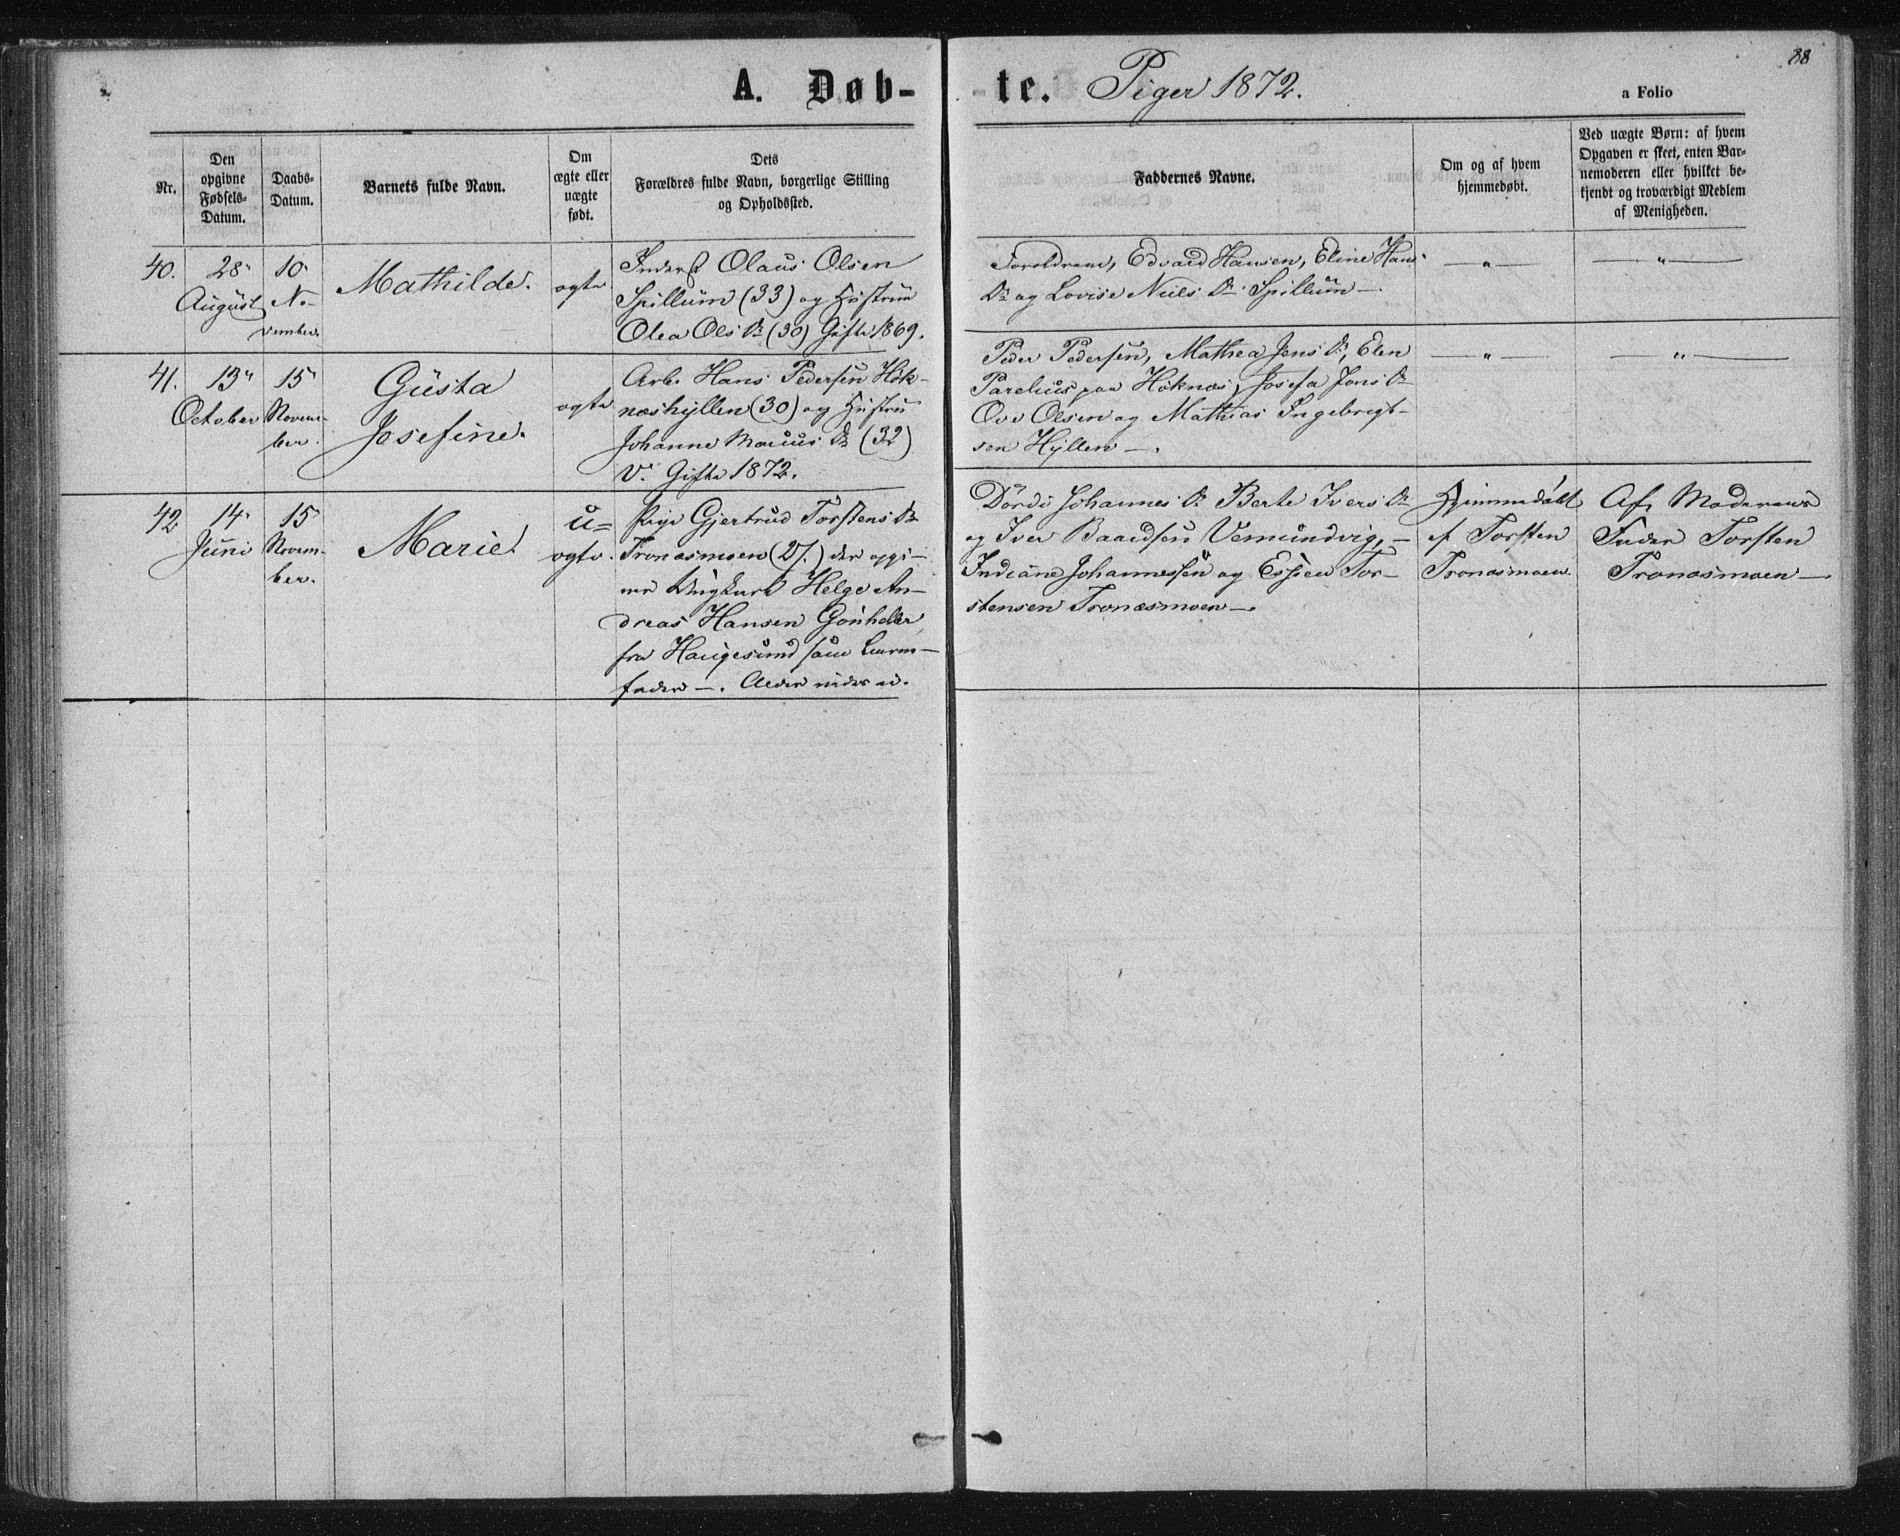 88
A. Døb- te. Piger 1872.
a Folio
Nr.
Den
opgivne
Fødsels-
Datum.
Daabs-
Datum.
Barnets fulde Navn.
Om
ægte eller
uægte
født.
Dets
Forældres fulde Navn, borgerlige Stilling
og Opholdssted.
Faddernes Navne.
Om og af hvem
hjemmedøbt.
Ved uægte Børn: af hvem
Opgaven er skeet, enten Bar-
nemoderen eller hvilket be-
kjendt og troværdigt Medlem
af Menigheden.
40.
28
August
10
No-
vember
Mathilde.
ægte
Inderst Olaus Olsen
Spillum (33) og Hustru
Olea Ols D. (30) Gifte 1869.
Forældrene, Edvard Hansen, Eline Hans
D. og Lovise Neils D. Spillum —.
— „ —
— „ —
41.
13
October
15
Novem-
ber.
Gusta
Josefine.
ægte
Arb. Hans Pedersen Høk-
næshyllen (30) og Hustru
Johanne D. (32)
V. Gifte 1872.
Peder Pedersen, Mathea Jens D., Elen
Parelius paa Høknæs, Josefa Jens D.
Ove Olsen og Mathias Ingebrigt-
sen Hyllen —.
— „ —
— „ —
42
14
Juni
15
Novem-
ber.
Marie.
u-
ægte.
Pige Gjertrud Torstens D.
Tronæsmoen (27.) der opgi-
ver Ungkarl Helge An-
dreas Hansen
fra Haugesund som Barne-
fader —. Alder vides ei.
Dordi Johannes D. Berte Ivers D.
og Iver Baardsen Vemundvig, —
Indiane Johannessen og Tor-
stensen Tronæsmoen —.
Hjemmedøbt
af Torsten
Tronæsmoen
Af Moderens
Fader Torsten
Tronæsmoen —.